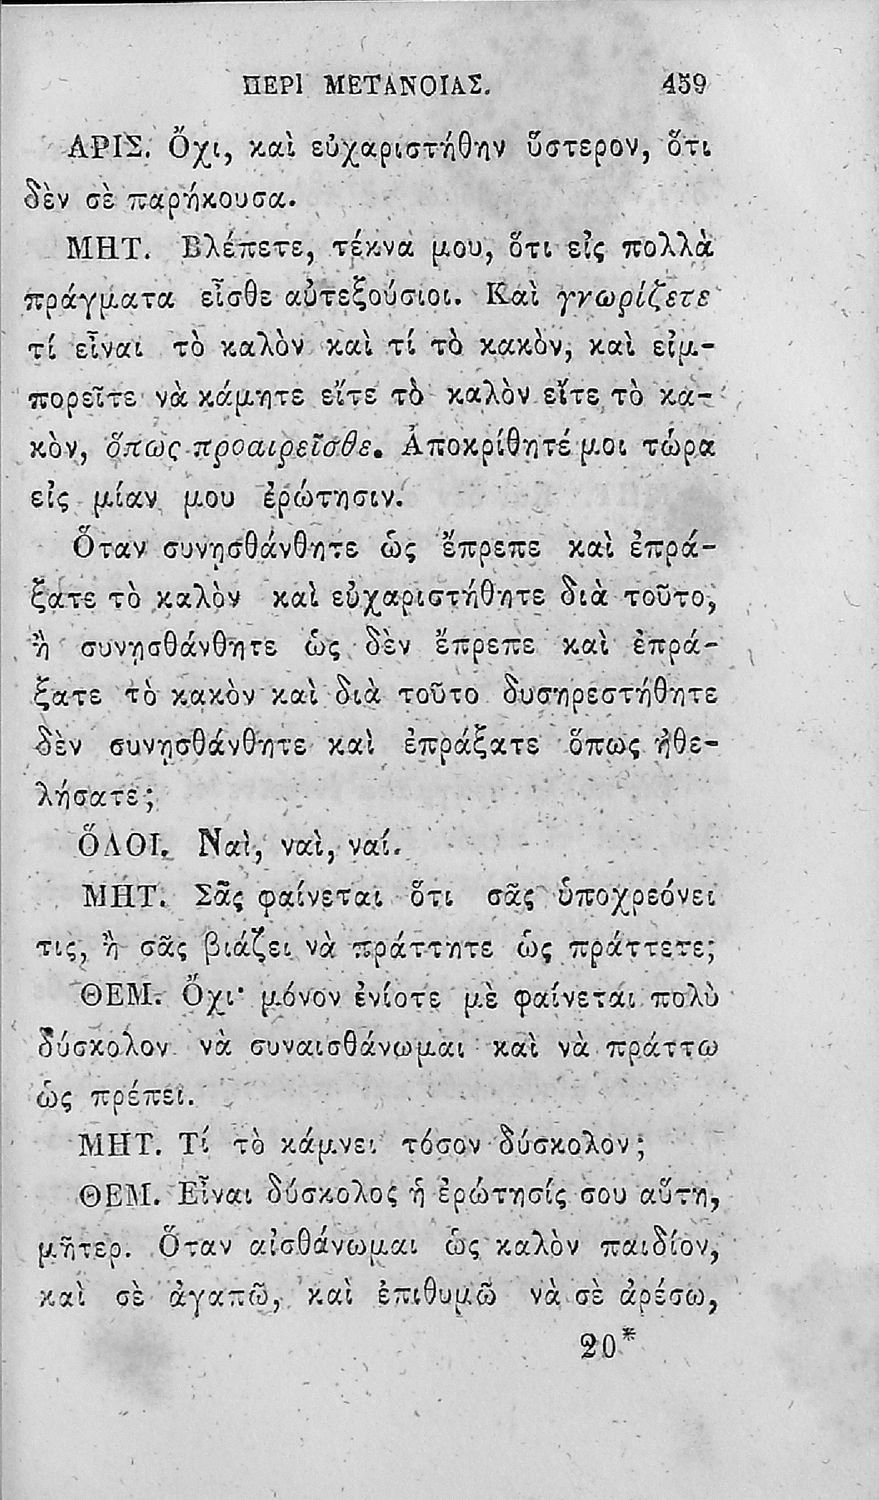 ΠΕΡΙ ΜΕΤΑΝΟΙΑΣ. 459
ΑΡΙΣ. Ὄχι, καὶ εὐχαριστήθην ὕστερον, ὅτι
δὲν σὲ παρήκουσα.
ΜΗΤ. Βλέπετε, τέκνα μου, ὅτι εἰς πολλὰ
πράγματα εἶσθε αὐτεξούσιοι. Καὶ γνωρίζετε
τί εἶναι τὸ καλὸν καὶ τί τὸ κακὸν, καὶ εἰμ-
πορεῖτε νὰ κάμητε εἴτε τὸ καλὸν εἴτε τὸ κα-
κὸν, ὅπως προαιρεῖσθε. Ἀποκρίθητέ μοι τώρα
εἰς μίαν μου ἐρώτησιν.
Ὅταν συνῃσθάνθητε ὡς ἔπρεπε καὶ ἐπρά-
ξατε τὸ καλὸν καὶ εὐχαριστήθητε διὰ τοῦτο,
ἢ συνῃσθάνθητε ὡς δὲν ἔπρεπε καὶ ἐπρά-
ξατε τὸ κακὸν καὶ διὰ τοῦτο δυσηρεστήθητε
δὲν συνῃσθάνθητε καὶ ἐπράξατε ὅπως ἠθε-
λήσατε;
ὍΛΟΙ. Ναὶ, ναὶ, ναί.
ΜΗΤ. Σᾶς φαίνεται ὅτι σᾶς ὑποχρεόνει
τις, ἢ σᾶς βιάζει νὰ πράττητε ὡς πράττετε;
ΘΕΜ. Ὄχι· μόνον ἐνίοτε μὲ φαίνεται πολὺ
δύσκολον νὰ συναισθάνωμαι καὶ νὰ πράττω
ὡς πρέπει.
ΜΗΤ. Τί τὸ κάμνει τόσον δύσκολον;
ΘΕΜ. Εἶναι δύσκολος ἡ ἐρώτησίς σου αὕτη,
μῆτερ. Ὅταν αἰσθάνωμαι ὡς καλὸν παιδίον,
καὶ σὲ ἀγαπῶ, καὶ ἐπιθυμῶ νὰ σὲ ἀρέσω,
20*